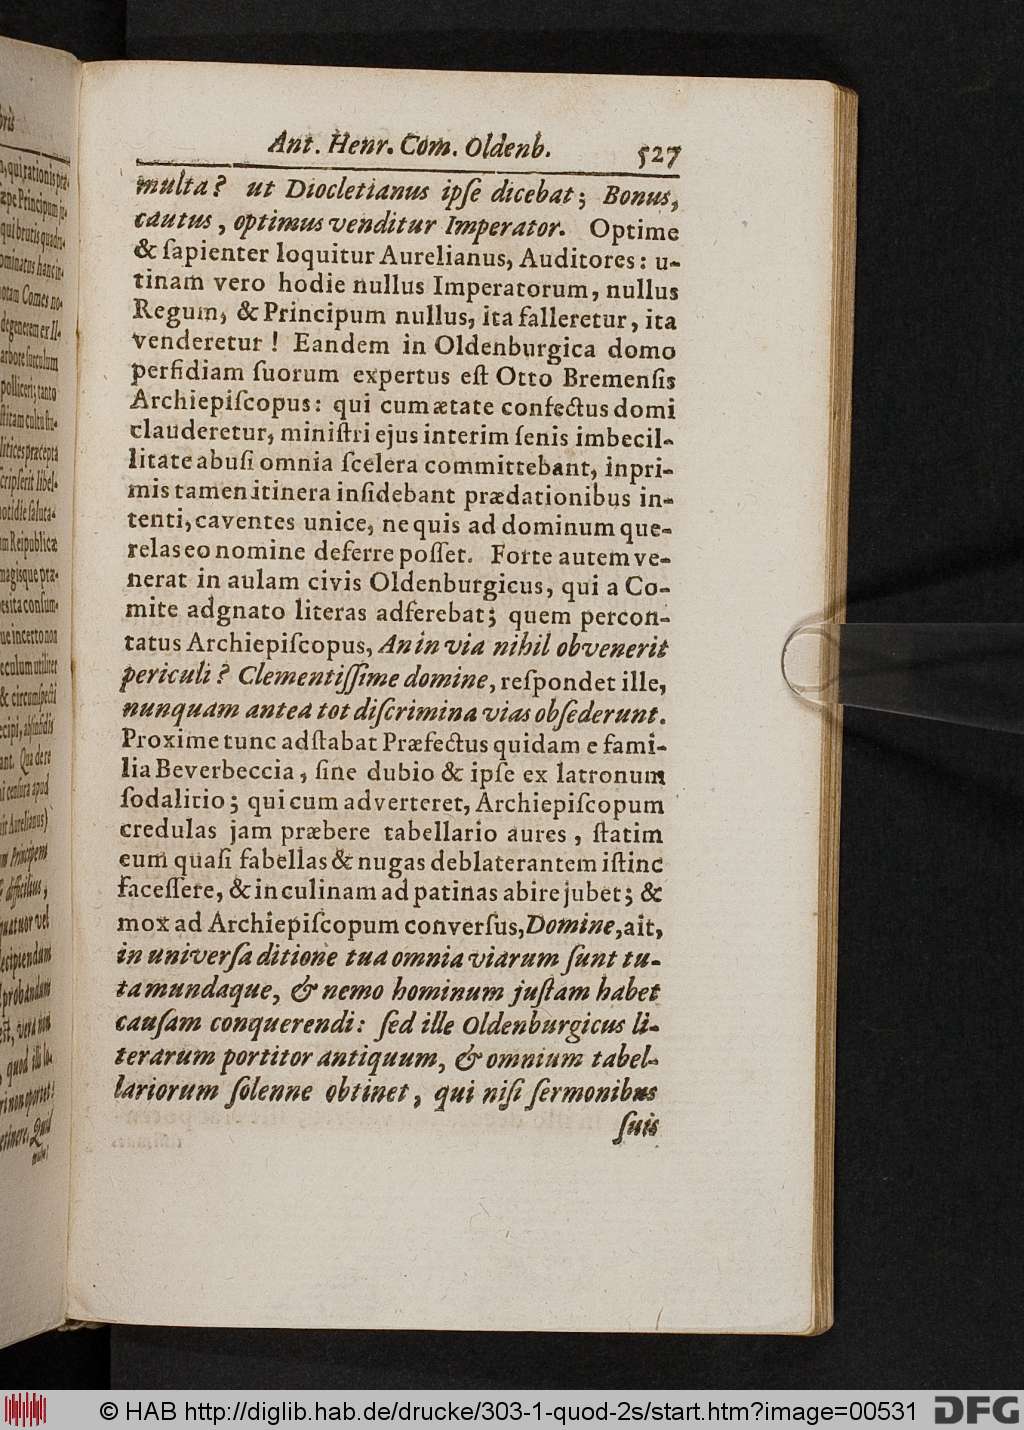 Ant. Henr. Com. Oldenb. 527
multa? ut Diocletianus ipſe dicebat; Bonus,
cautus, optimus venditur Imperator. Optime
& ſapienter loquitur Aurelianus, Auditores: u-
tinam vero hodie nullus Imperatorum, nullus
Regum, & Principum nullus, ita falleretur, ita
venderetur! Eandem in Oldenburgica domo
perfidiam ſuorum expertus eſt Otto Bremenſis
Archiepiſcopus: qui cum ætate confectus domi
clauderetur, miniſtri ejus interim ſenis imbecil-
litate abuſi omnia ſcelera committebant, inpri-
mis tamen itinera inſidebant prædationibus in-
tenti, caventes unice, ne quis ad dominum que-
relas eo nomine deferre poſſet. Forte autem ve-
nerat in aulam civis Oldenburgicus, qui a Co-
mite adgnato literas adferebat; quem percon-
tatus Archiepiſcopus, An in via nihil obvenerit
periculi? Clementiſſime domine, reſpondet ille,
nunquam antea tot diſcrimina vias obſederunt.
Proxime tunc adſtabat Præfectus quidam e fami-
lia Beverbeccia, ſine dubio & ipſe ex latronum
ſodalitio; qui cum adverteret, Archiepiſcopum
credulas jam præbere tabellario aures, ſtatim
eum quaſi fabellas & nugas deblaterantem iſtinc
faceſſere, & in culinam ad patinas abire jubet; &
mox ad Archiepiſcopum converſus, Domine, ait,
in univerſa ditione tua omnia viarum ſunt tu-
ta mundaque, & nemo hominum juſtam habet
cauſam conquerendi: ſed ille Oldenburgicus li-
terarum portitor antiquum, & omnium tabel-
lariorum ſolenne obtinet, qui niſi ſermonibus
ſuis
© HAB http://diglib.hab.de/drucke/303-1-quod-2s/start.htm?image=00531 DFG